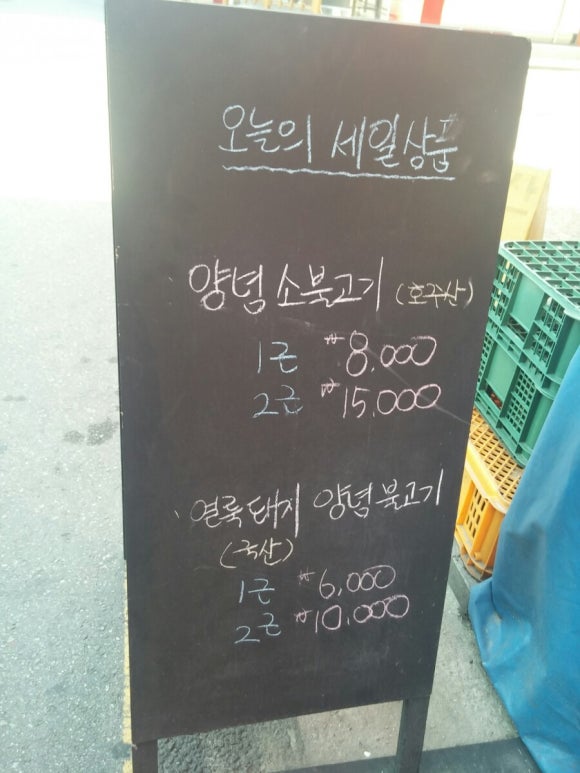 오늘의 세일상품
양념 소불고기 (호주산)
1근 ₩8,000
2근 ₩15,000
얼룩돼지 양념불고기
(국산)
1근 ₩6,000
2근 ₩10,000